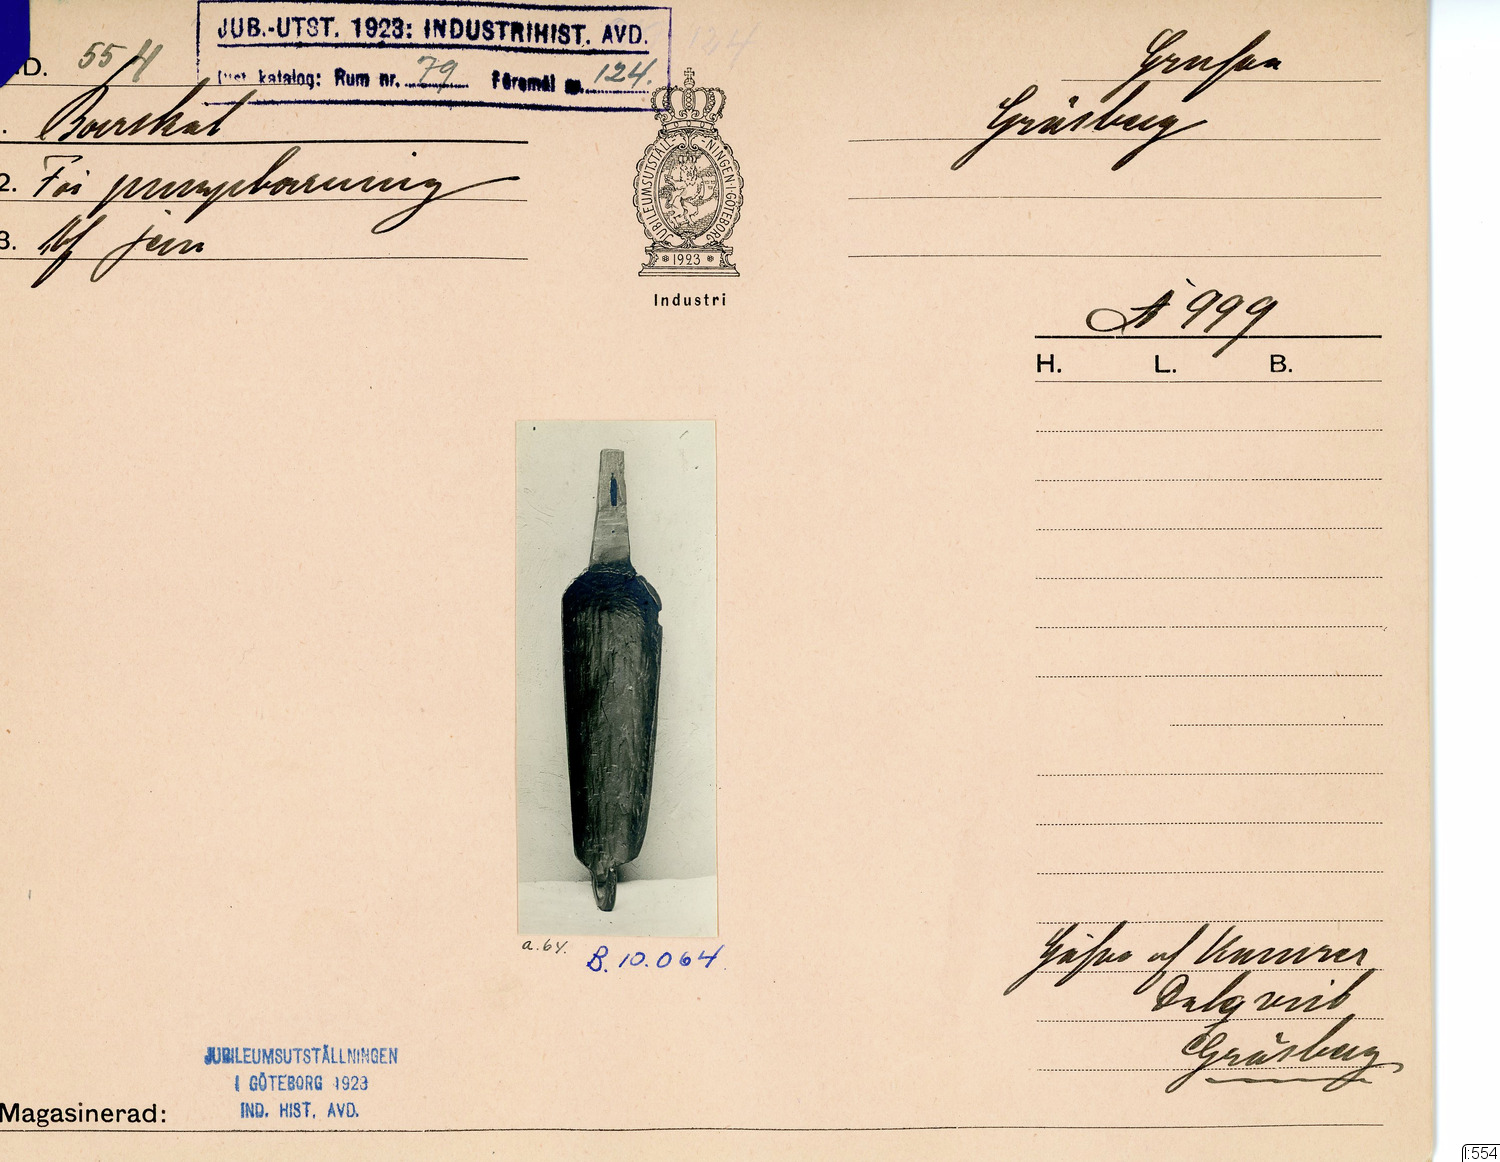 JUB.-UTST. 1923: INDUSTRIHIST. AVD.
Just. katalog: Rum nr. 79 Föremål nr. 124.
124
D. 554
Borrskal
2. För pumpborrning
3. Af jern
JUBILEUMSUTSTÄLLNINGEN·I·GÖTEBORG
1923
Industri
Grufva
Gräsberg
A 999
H. L. B.
a.64.
B.10.064
Gåfva af Kamrer
Dalqvist
Gräsberg
JUBILEUMSUTSTÄLLNINGEN
I GÖTEBORG 1923
IND. HIST. AVD.
Magasinerad:
I:554